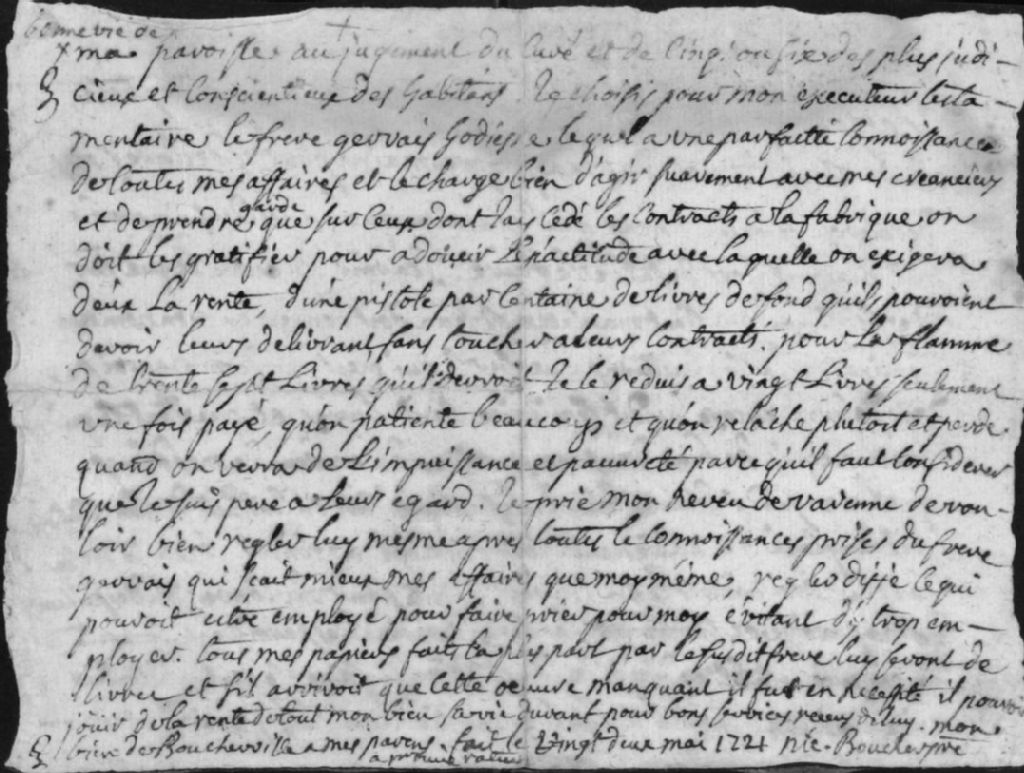 bonne vie de
x ma paroisse au jugement du curé et de cinq ou six des plus judi-
cieux et conscientieux des habitans. Je choisis pour mon executeur testa-
mentaire le frere gervais hodiesne lequel a une parfaitte connoissance
de toutes mes affaires et le charge bien d'agir suavement avec mes creanciers
et de prendre garde que sur ceux dont Jay cédé les contracts a la fabrique on
doit les gratifier pour adoucir L'exactitude avec laquelle on exigera
deux La rente, d'une pistole par centaine de livres de fond qu'ils pouvoient
devoir leurs delivrant sans toucher a leurs contracts. pour La flamme
de trente sept Livres qu'il devroit Je le reduis a vingt Livres seulement
une fois payé, qu'on patiente beaucoup et qu'on relâche plutost et perde
quand on verra de L'impuissance et pauvreté parcequ'il faut considerer
que Je suis pere a Leurs egard. Je prie mon neveu de varenne de vou-
loir bien regler luy mesme apres toutes le connoissances prises du frere
gervais qui scait mieux mes affaires que moy méme, regler disje ce qui
pouroit estre employé pour faire prier pour moy évitant d'y trop em-
ployer. tous mes papiers faits la plus part par le susdit frere luy seront de
livrer et s'il arrivoit que cette oeuvre manquant il fut en necessité il pouroit
jouir de la rente de tout mon bien sa vie durant pour bons services receus de luy. mon
bien de Boucherville a mes parens. fait le Vingt deux mai 1721 Nic. Boucher pre